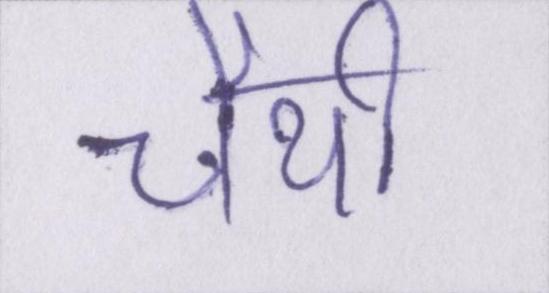 चौथी